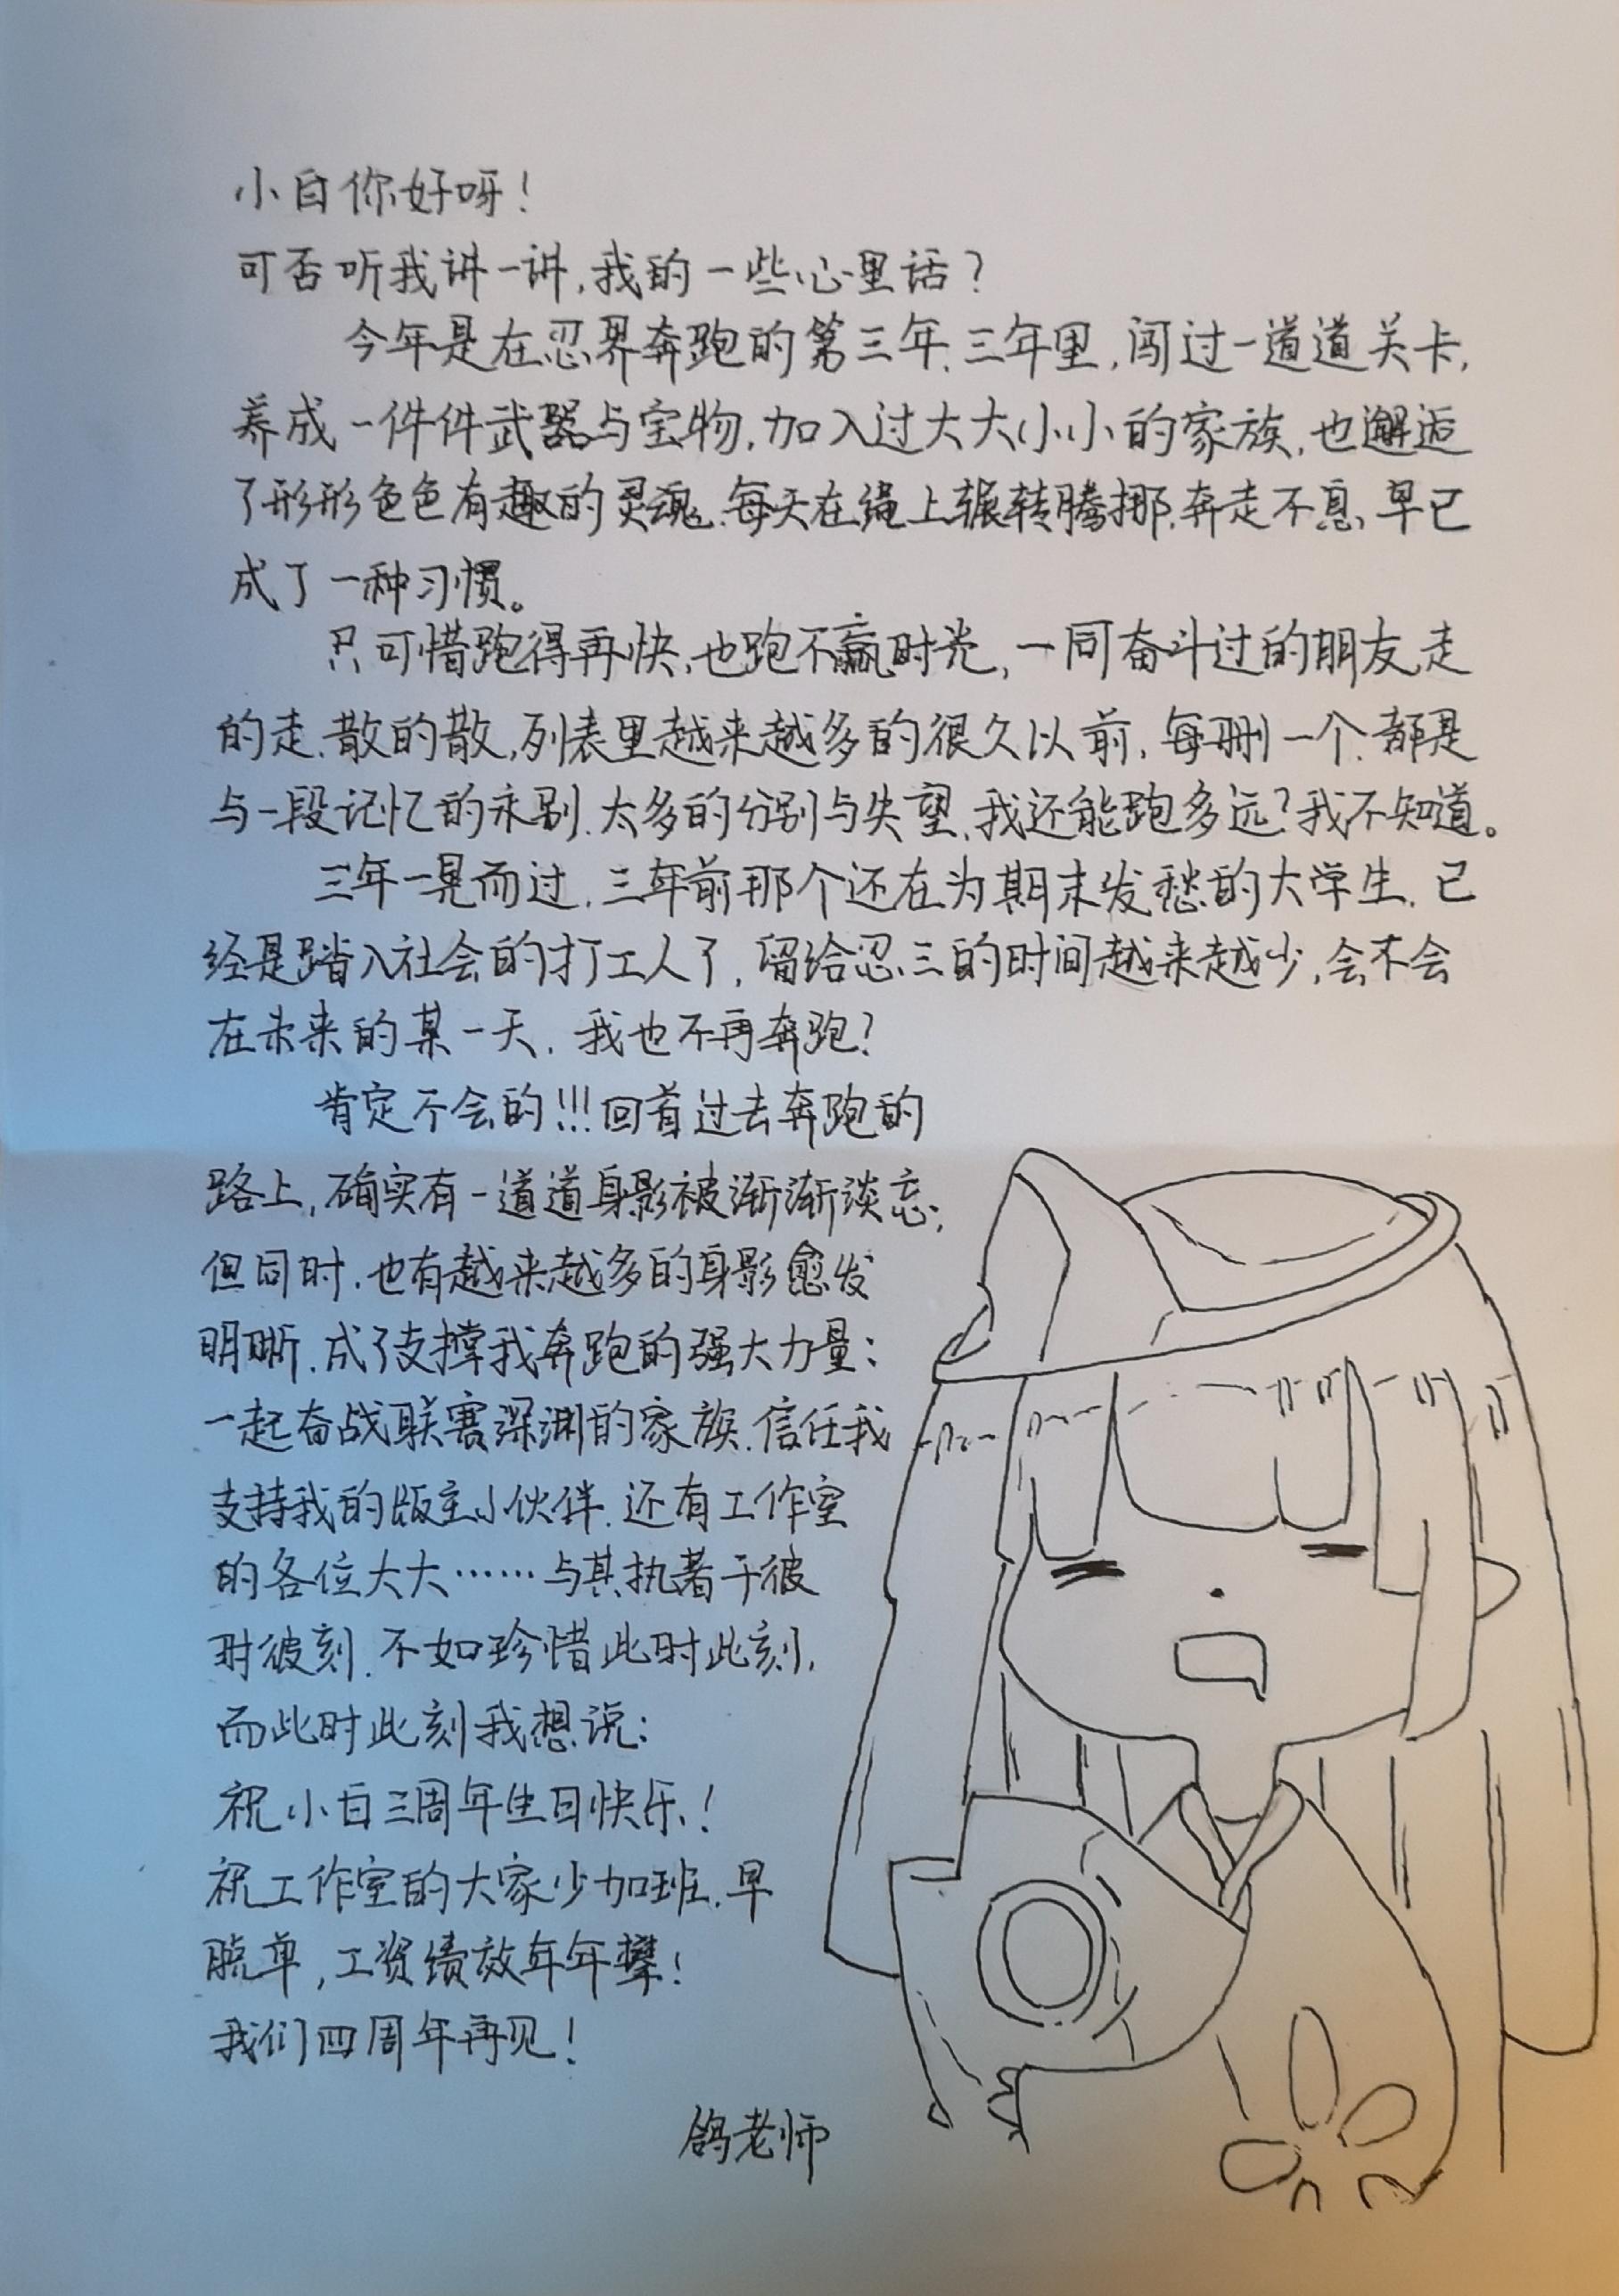 小白你好呀！
可否听我讲一讲,我的一些心里话？
今年是在忍界奔跑的第三年.三年里,闯过一道道关卡,
养成一件件武器与宝物,加入过大大小小的家族,也邂逅
了形形色色有趣的灵魂.每天在绳上辗转腾挪.奔走不息、早已
成了一种习惯。
只可惜跑得再快,也跑不赢时光,一同奋斗过的朋友,走
的走.散的散,列表里越来越多的很久以前,每删一个.都是
与一段记忆的永别.太多的分别与失望,我还能跑多远?我不知道。
三年一晃而过,三年前那个还在为期末发愁的大学生.已
经是踏入社会的打工人了,留给忍三的时间越来越少,会不会
在未来的某一天,我也不再奔跑?
肯定不会的!!!回首过去奔跑的
路上,确实有一道道身影被渐渐谈忘,
但同时.也有越来越多的身影愈发
明晰.成了支撑我奔跑的强大力量:
一起奋战联赛深渊的家族.信任我
支持我的版主小伙伴.还有工作室
的各位大大……与其执着于彼
时彼刻.不如珍惜此时此刻,
而此时此刻我想说:
祝小白三周年生日快乐!
祝工作室的大家少加班.早
脱单,工资绩效年年攀!
我们四周年再见!
鸽老师